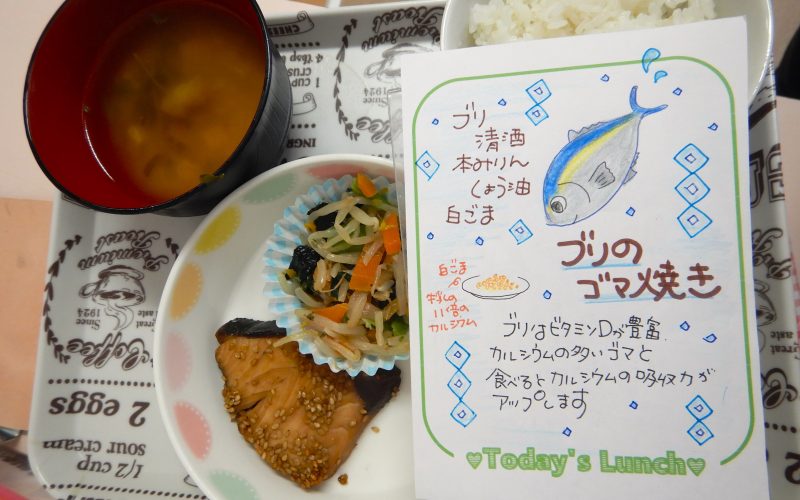 ブリ
清酒
本みりん
しょう油
白ごま
ブリの
ゴマ焼き
白ごま
牛乳の
11倍の
カルシウム
ブリはビタミンDが豊富。
カルシウムの多いゴマと
食べるとカルシウムの吸収力が
アップします
♥Today's Lunch♥
Premium
Roast
Since
1924
Coffee
2 eggs
1/2 cup
sour cream
1 CUP
4 tbsp